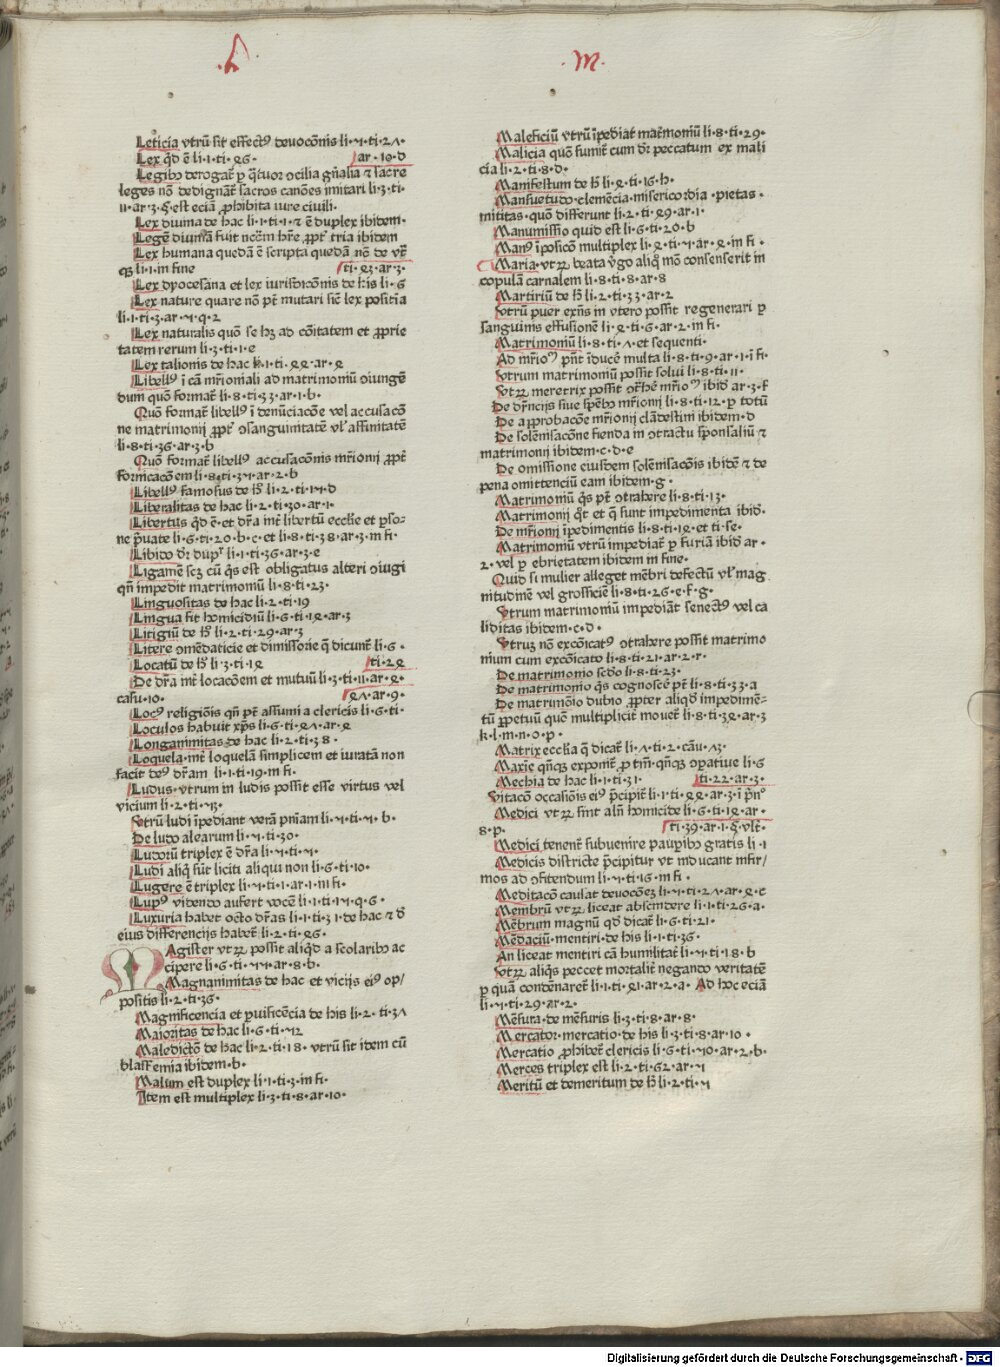 .L.
.M.
Leticia vtrū sit effectꝰ deuocōnis li·4·ti·27·
Lex qd̄ ē li·1·ti·26· ar·10·d
Legibꝰ derogat̄ p̱ q̄tuor ɔcilia gn̄alia ⁊ sacre
leges nō dedignāt̄ sacros canōes imitari li·3·ti·
11·ar·3·q̄ est eciā ꝓhibita iure ciuili·
Lex diuina de hac li·1·ti·1·⁊ ē duplex ibidem·
Legē diuinā fuit nc̄c̄m hr̄e ꝓpt̄ tria ibidem
Lex humana quedā ē scripta quedā nō de vt̄
qꝫ li·1·in fine ti·23·ar·3·
Lex dyocesana et lex iurisdicōnis de his li·6
Lex nature quare nō pt̄ mutari sic̄ lex positīa
li·1·ti·3·ar·4·q·2
Lex naturalis quō se hꝫ ad cōitatem et ꝓprie
tatem rerum li·3·ti·1·e
Lex talionis de hac li·1·ti·22·ar·2
Libellꝰ ī cā mr̄ioniali ad matrimoniū ɔiungē
dum quō format̄ li·8·ti·33·ar·1·b·
Quō format̄ libellꝰ ī denūciacōe vel accusacō
ne matrimonij ꝓpt̄ ɔsanguinitatē vl̓ affinitatē
li·8·ti·36·ar·3·b
Quō format̄ libellꝰ accusacōnis mr̄ionij ꝓpt̄
fornicacōem li·8·ti·34·ar·2·b
Libellꝰ famosus de h̄ li·2·ti·14·d
Liberalitas de hac li·2·ti·30·ar·1·
Libertus qd̄ ē·et dr̄a int̄ libertū ecclīe et pso⸗
ne p̄uate li·6·ti·20·b·c·et li·8·ti·38·ar·3·in fi·
Libido dr̄ dupl̓r li·1·ti·36·ar·3·e
Ligamē scꝫ cū q̄s est obligatus alteri ɔiugi
qn̄ impedit matrimoniū li·8·ti·23·
Linguositas de hac li·2·ti·19
Lingua fit homicidiū li·6·ti·12·ar·3
Litigiū de h̄ li·2·ti·29·ar·3
Litere ɔmēdaticie et dimissorie q̄ dicunt̄ li·6·
Locatū de h̄ li·3·ti·12 ti·22
De dr̄a int̄ locacōem et mutuū li·3·ti·11·ar·2·
casu·10· 27·ar·9·
Locꝰ religiōis qn̄ pt̄ assumi a clericis li·6·ti·
Loculos habuit xp̄s li·6·ti·27·ar·2
Longanimitas de hac li·2·ti·38·
Loquela·int̄ loquelā simplicem et iuratā non
facit deꝰ dr̄am li·1·ti·19·in fi·
Ludus·vtrum in ludis possit esse virtus vel
vicium li·2·ti·43·
Vtrū ludi īpediant verā pn̄iam li·4·ti·4· b·
De ludo alearum li·4·ti·30·
Ludorū triplex ē dr̄a li·4·ti·4·
Ludi aliq̄ sūt liciti aliqui non li·6·ti·10·
Lugere ē triplex li·4·ti·1·ar·1·in fi·
Lupꝰ videndo aufert vocē li·1·ti·14·q·6·
Luxuria habet octo dr̄as li·1·ti·31·de hac ⁊ d̄
eius differencijs habet̄ li·2·ti·26·
Magister vtꝝ possit aliqd̄ a scolaribꝰ ac
cipere li·6·ti·44·ar·8·b·
Magnanimitas de hac et vicijs eiꝰ op/
positis li·2·ti·36·
Magnificencia et puificēcia de his li·2·ti·37
Maioritas de hac li·6·ti·42
Maledictō de hac li·2·ti·18· vtrū sit idem cū
blasfemia ibidem·b·
Malum est duplex li·1·ti·3·in fi·
Item est multiplex li·3·ti·8·ar·10·
Maleficiū vtrū īpediat mat̄moniū li·8·ti·29·
Malicia quō sumit̄ cum dr̄ peccatum ex mali
cia li·2·ti·8·d·
Manifestum de h̄ li·2·ti·16·h·
Mansuetudo·clemēcia·misericordia·pietas·
mititas·quō differunt li·2·ti·29·ar·1·
Manumissio quid est li·6·ti·20·b
Manꝰ īposicō multiplex li·2·ti·4·ar·2·in fi·
Maria·vtꝝ beata v̓go aliq̊ mō consenserit in
copulā carnalem li·8·ti·8·ar·8
Martiriū de h̄ li·2·ti·33·ar·2
Vtrū puer exn̄s in vtero possit regenerari p̱
sanguinis effusionē li·2·ti·6·ar·2·in fi·
Matrimoniū li·8·ti·7·et sequenti·
Ad mr̄ioᵐ pn̄t īducē multa li·8·ti·9·ar·1·ī fi·
Vtrum matrimoniū possit solui li·8·ti·11·
Vtꝝ meretrix possit ɔt̄hē mr̄ioᵐ ibid̄ ar·3·f
De dr̄ncijs siue sp̄ebꝰ mr̄ionij li·8·ti·12·p̱ totū
De approbacōne mr̄ionij clādestini ibidem·d
De solēnisacōne fienda in ɔtractu sponsaliū ⁊
matrimonij ibidem·c·d·e
De omissione eiusdem solēnisacōis ibidē ⁊ de
pena omittenciū eam ibidem·g·
Matrimoniū q̄s pt̄ ɔtrahere li·8·ti·13·
Matrimonij q̊t et q̄ sunt impedimenta ibid̄·
De mr̄ionij īpedimentis li·8·ti·12·et ti·se·
Matrimoniū vtrū impediat̄ p̱ furiā ibid̄ ar·
2·vel p̱ ebrietatem ibidem in fine·
Quid si mulier alleget mēbri defectū vl̓ mag
nitudinē vel grossiciē li·8·ti·26·e·f·g·
Vtrum matrimoniū impediāt senectꝰ vel ca
liditas ibidem·c·d·
Vtrū nō excōicatꝰ ɔtrahere possit matrimo
nium cum excōicato li·8·ti·21·ar·2·r·
De matrimonio sc̄do li·8·ti·23·
De matrimonio q̄s cognoscē pt̄ li·8·ti·33·a
De matrimōio dubio ꝓpter aliqd̄ impedimē⸗
tū ꝑpetuū quō multiplicit̄ mouet̄ li·8·ti·32·ar·3
k·l·m·n·o·p·
Matrix eccīa q̄ dicat̄ li·7·ti·2·cāu·73·
Maxīe qn̄qꝫ exponit̄ p̱ tm̄·qn̄qꝫ opatiue li·6
Mechia de hac li·1·ti·31· ti·22·ar·3·
Vitacō occasiōis eiꝰ p̄cipit̄ li·1·ti·22·ar·3·ī p̄n̊
Medici vtꝝ sint aln̄ homicide li·6·ti·12·ar·
8·p· ti·39·ar·1·q̄·vlt̄·
Medici tenent̄ subuenire paupibꝰ gratis li·1
Medicis districte p̄cipitur vt inducant infir/
mos ad ɔfitendum li·4·ti·16·in fi·
Meditacō causat deuocōeꝫ li·4·ti·27·ar·2·c
Membrū vtꝝ liceat abscindere li·1·ti·26·a·
Mēbrum magnū qd̄ dicat̄ li·6·ti·21·
Mēdaciū·mentiri·de his li·1·ti·36·
An liceat mentiri cā humilitat̄ li·4·ti·18·b
Vtꝝ aliq̄s peccet mortalit̄ negando veritatē
p̱ quā condēnaret̄ li·1·ti·21·ar·2·a· Ad hoc eciā
li·4·ti·29·ar·2·
Mēsura·de mēsuris li·3·ti·8·ar·8·
Mercator·mercatio·de his li·3·ti·8·ar·10·
Mercatio ꝓhibet̄ clericis li·6·ti·40·ar·2·b·
Merces triplex est li·2·ti·62·ar·4
Meritū et demeritum de h̄ li·2·ti·4
Digitalisierung gefördert durch die Deutsche Forschungsgemeinschaft - DFG